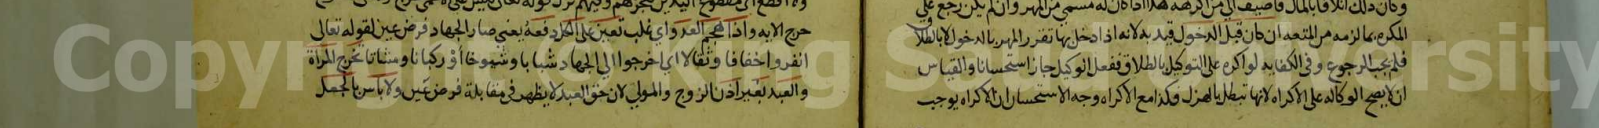 وكان ذلك اتلافا بالمال فاضيف الى من اكرهه هذا اذا كان له مسمى من المهر وان لم يكن رجع على
المكره بما لزمه من المتعه ان كان قبل الدخول قيد به لانه اذا دخل بها تقرر المهر بالدخول لا بالطلاق
فلم يجب الرجوع وفى الكفايه لو اكره على التوكيل بالطلاق ففعل الوكيل جاز استحسانا والقياس
ان لا يصح الوكاله على الاكراه لانها تبطل بالهزل فكذا مع الاكراه وجه الاستحسان ان الاكراه يوجب
حرج الايه واذا هجم العدو اي غلب تعين على الكل دفعه يعنى صار الجهاد فرض عين لقوله تعالى
انفروا خفافا وثقالا اى اخرجوا الى الجهاد شبابا وشيوخا أو ركبانا ومشاتا تخرج المرأة
والعبد بغير اذن الزوج والمولى لان حق العبد لا يظهر فى مقابلة فرض عين ولا بأس بالجعل
Copyright © King S University